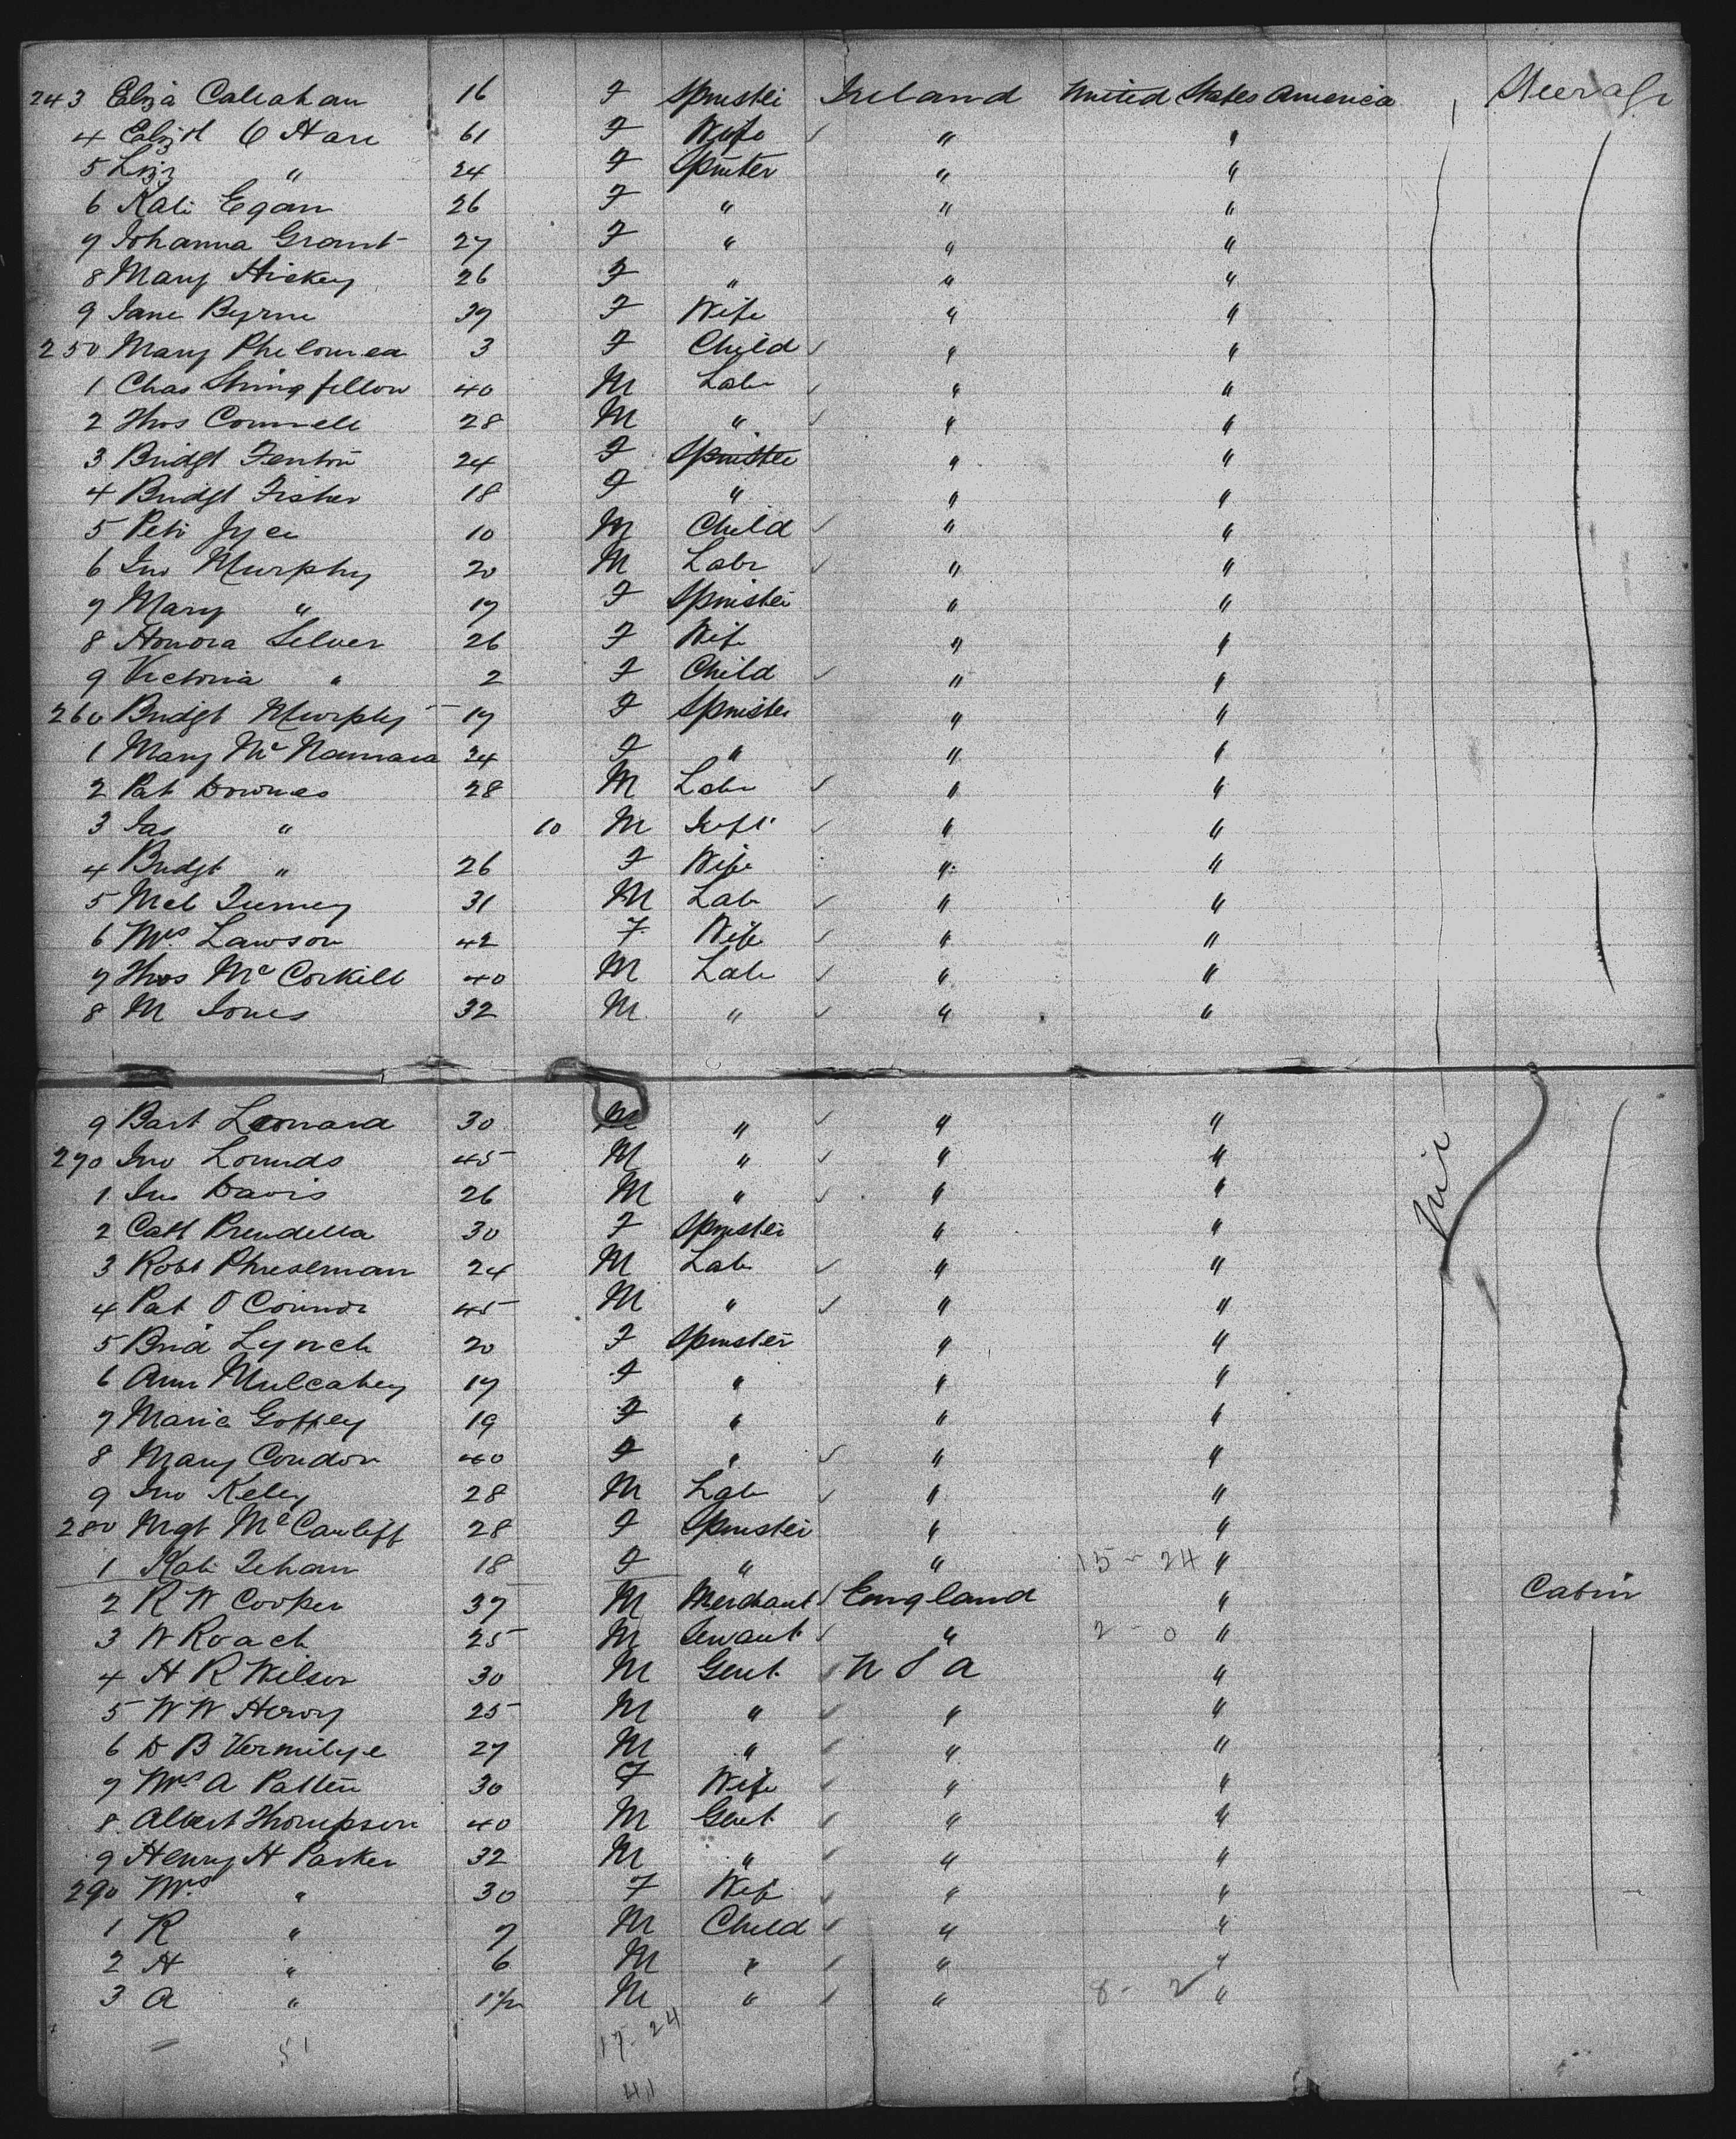 243 Eliza Caleahan 16 F Spinster Ireland United States America Steerage
4 Elizth O Hare 61 F Wife " "
5 Lizz " 24 F Spinster " "
6 Kate Egan 26 F " " "
7 Johanna Grant 27 F " " "
8 Mary Hickey 26 F " " "
9 Jane Byrne 39 F Wife " "
250 Mary Philomea 3 F Child " "
1 Chas Stringfellow 40 M Labr " "
2 Thos Connell 28 M " " "
3 Bridgt Fenton 24 F Spinster " "
4 Bridgt Fisher 18 F " " "
5 Petr Jyce 10 M Child " "
6 Jno Murphy 20 M Labr " "
7 Mary " 17 F Spinster " "
8 Honora Silver 26 F Wife " "
9 Victoria " 2 F Child " "
260 Bridgt Murphy 17 F Spinster " "
1 Mary McNamara 24 F " " "
2 Pat Downes 28 M Labr " "
3 Jas " 10 M Inft " "
4 Bridgt " 26 F Wife " "
5 Mcl Tierney 31 M Lab " "
6 Mrs Lawson 42 F Wife " "
7 Thos McCorkill 40 M Lab " "
8 M Jones 32 M " " "
9 Bart Leonard 30 M " " "
270 Jno Lounds 45 M " " "
1 Jno Davis 26 M " " "
2 Cath Prendella 30 F Spinster " "
3 Robt 24 M Lab " "
4 Pat O Connor 45 M " " "
5 Brid Lynch 20 F Spinster " "
6 Ann Mulcahey 17 F " " "
7 Maria Goffey 19 F " " "
8 Mary Condon 40 F " " "
9 Jno Keley 28 M Lab " "
280 Mgt McCauliff 28 F Spinster " "
1 Kate Tehan 18 F " " 15 - 24 "
2 R W Cooper 37 M Merchant England " Cabin
3 W Roach 25 M Servant " 2 - 0 "
4 H R Wilson 30 M Gent U S A "
5 W W Henry 25 M " " "
6 D B Vermilye 27 M " " "
7 Mrs A Patten 30 F Wife " "
8 Albert Thompson 40 M Gent " "
9 Henry H Parker 32 M " " "
290 Mrs " 30 F Wife " "
1 R " 7 M Child " "
2 H " 6 M " " "
3 A " M " " 8 - 2 "
51 17 - 24
41